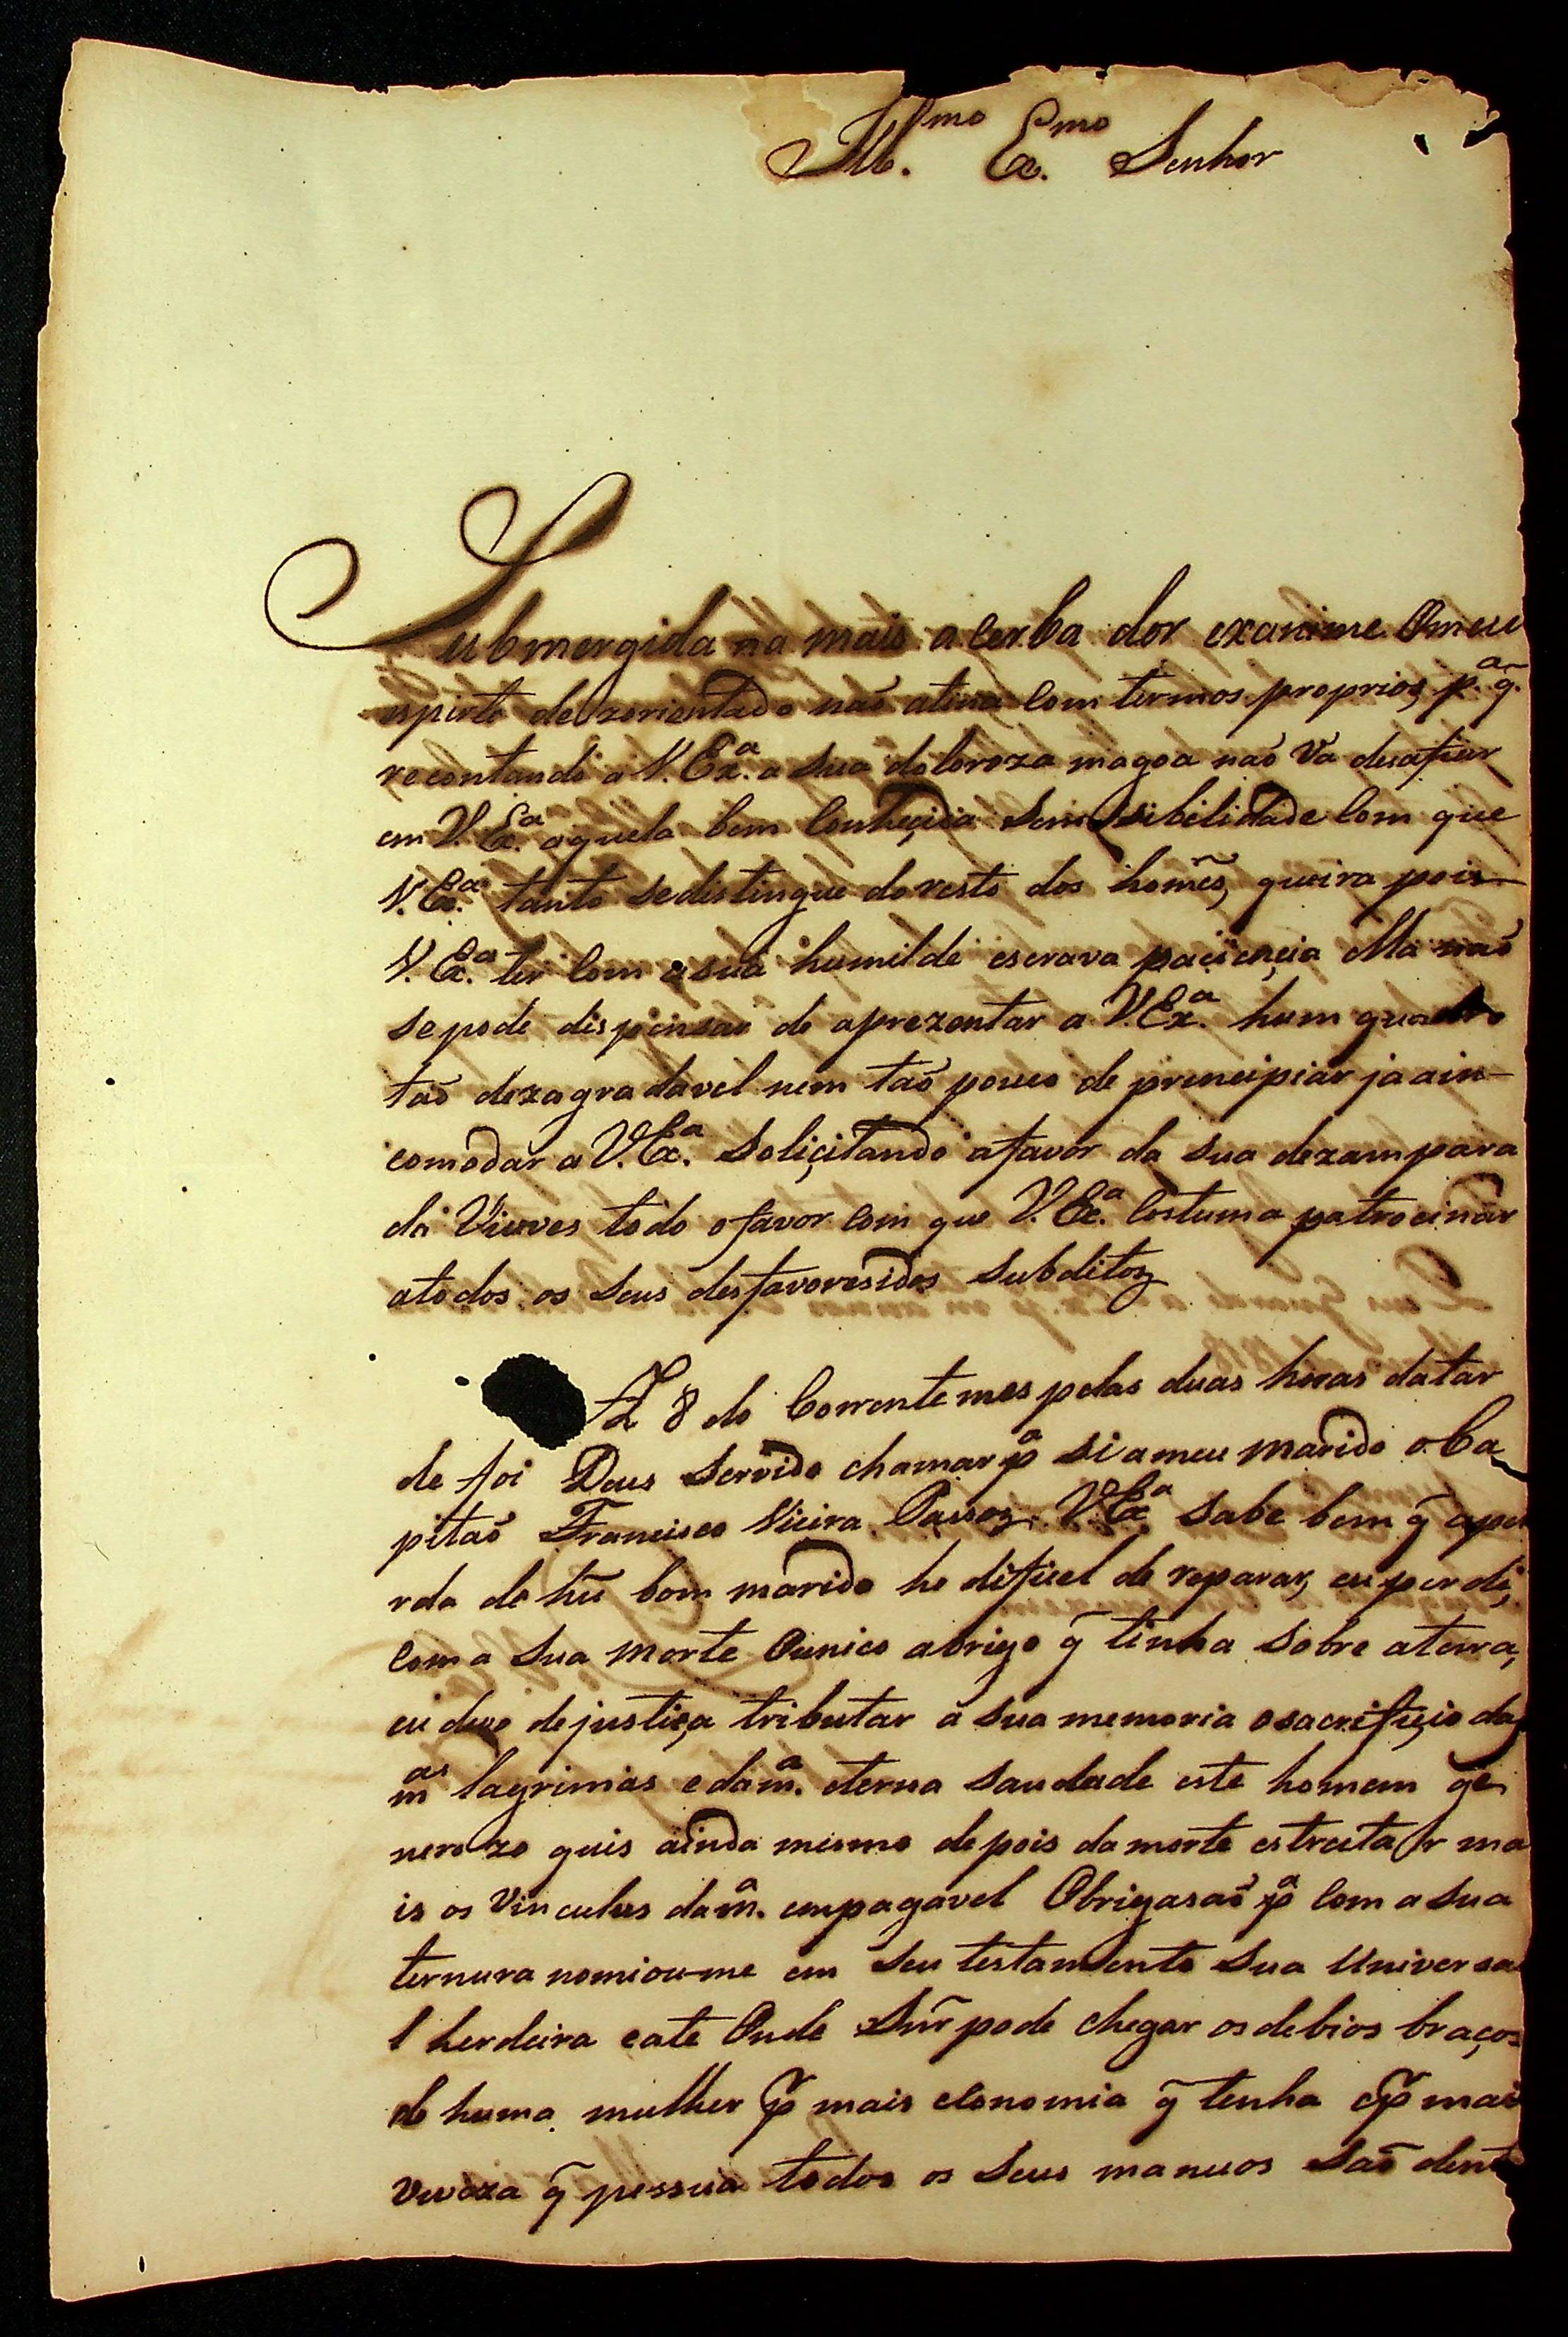 Ill.mo Ex.mo Senhor
Submergida na mais acerba dor exanime O meu
espirto dezorientado não atina com termos proprios, p.a q.
recontando a V. Ex.a a sua doloroza magoa não Va desafiar
em V. Ex.a aquela bem Conheçida Sensibilidade Com que
V. Ex.a tanto sedestingue doresto dos homẽs, queira pois
V. Ex.a ter Com a sua humilde escrava paçiençia Ella não
sepode dispensar de aprezentar a V. Ex.a hum quadro
tão dezagradavel nem tão pouco de prencipiar ja ain-
comodar a V. Ex.a Soliçitando afavor da sua dezampara
da Viuves todo ofavor com que V. Ex.a Costuma patrocinar
atodos os Seus desfavoresidos Subditos
A 8 do Corrente mes pelas duas horas datar
de foi Deus Servido chamar p.a si ameu marido o Ca
pitão Francisco Vieira Passos. V. Ex.a Sabe bem q̃ ape
rda de hũ bom marido he difiçel de reparar, eu perdi,
Com a Sua morte O unico abrigo q̃ tinha Sobre aterra,
eu devo dejustiça tributar á Sua memoria osacrifiçio das
m.as lagrimas e da m.a eterna Saudade este homem ge
nerozo quis ainda mesmo depois da morte estreitar ma
is os Vinculos da m.a empagavel Obrigasão p.a Com a Sua
ternura nomiou-me em Seu testamento Sua Universa
l herdeira e ate Onde Snr̃ pode chegar os debios braços
de huma mulher p̃ mais Conomia q̃ tenha e p̃ mais
Viveza q̃ pessua todos os Seus manuos São dent